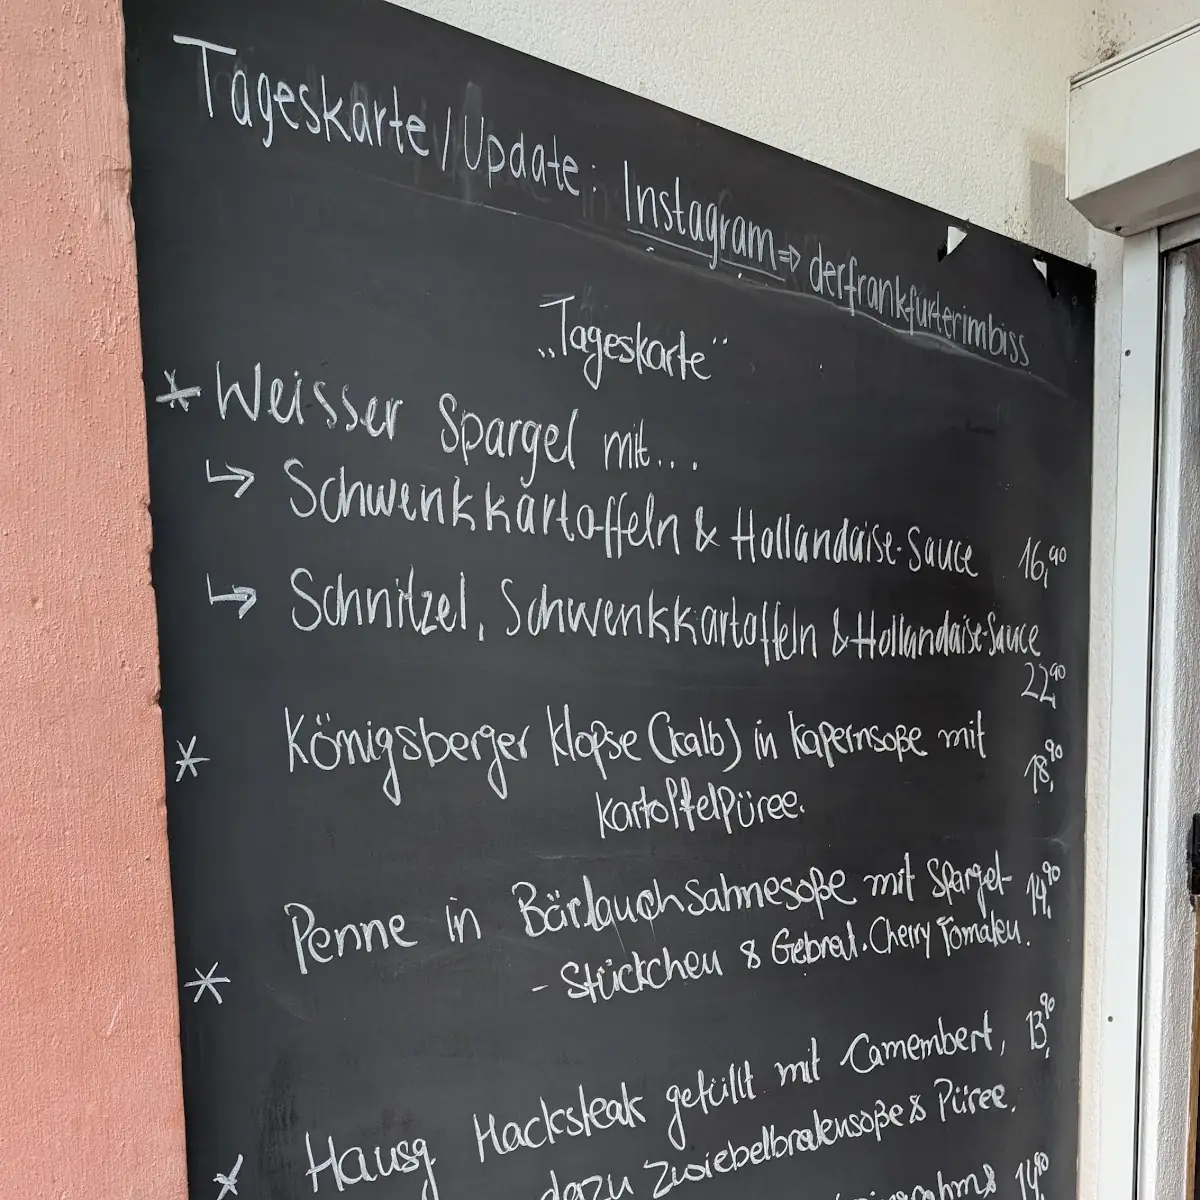 Tageskarte / Update: Instagram => derfrankfurterimbiss
„Tageskarte“
* Weisser Spargel mit...
↳ Schwenkkartoffeln & Hollandaise-Sauce 16,90
↳ Schnitzel, Schwenkkartoffeln & Hollandaise-Sauce
22,90
* Königsberger Klopse (Kalb) in Kapernsoße mit 18,90
Kartoffelpüree.
* Penne in Bärlauchsahnesoße mit Spargel- 14,90
- Stückchen & Gebrat. Cherry Tomaten.
* Hausg. Hacksteak gefüllt mit Camembert, 13,90
dazu Zwiebelbratensoße & Püree.
14,90